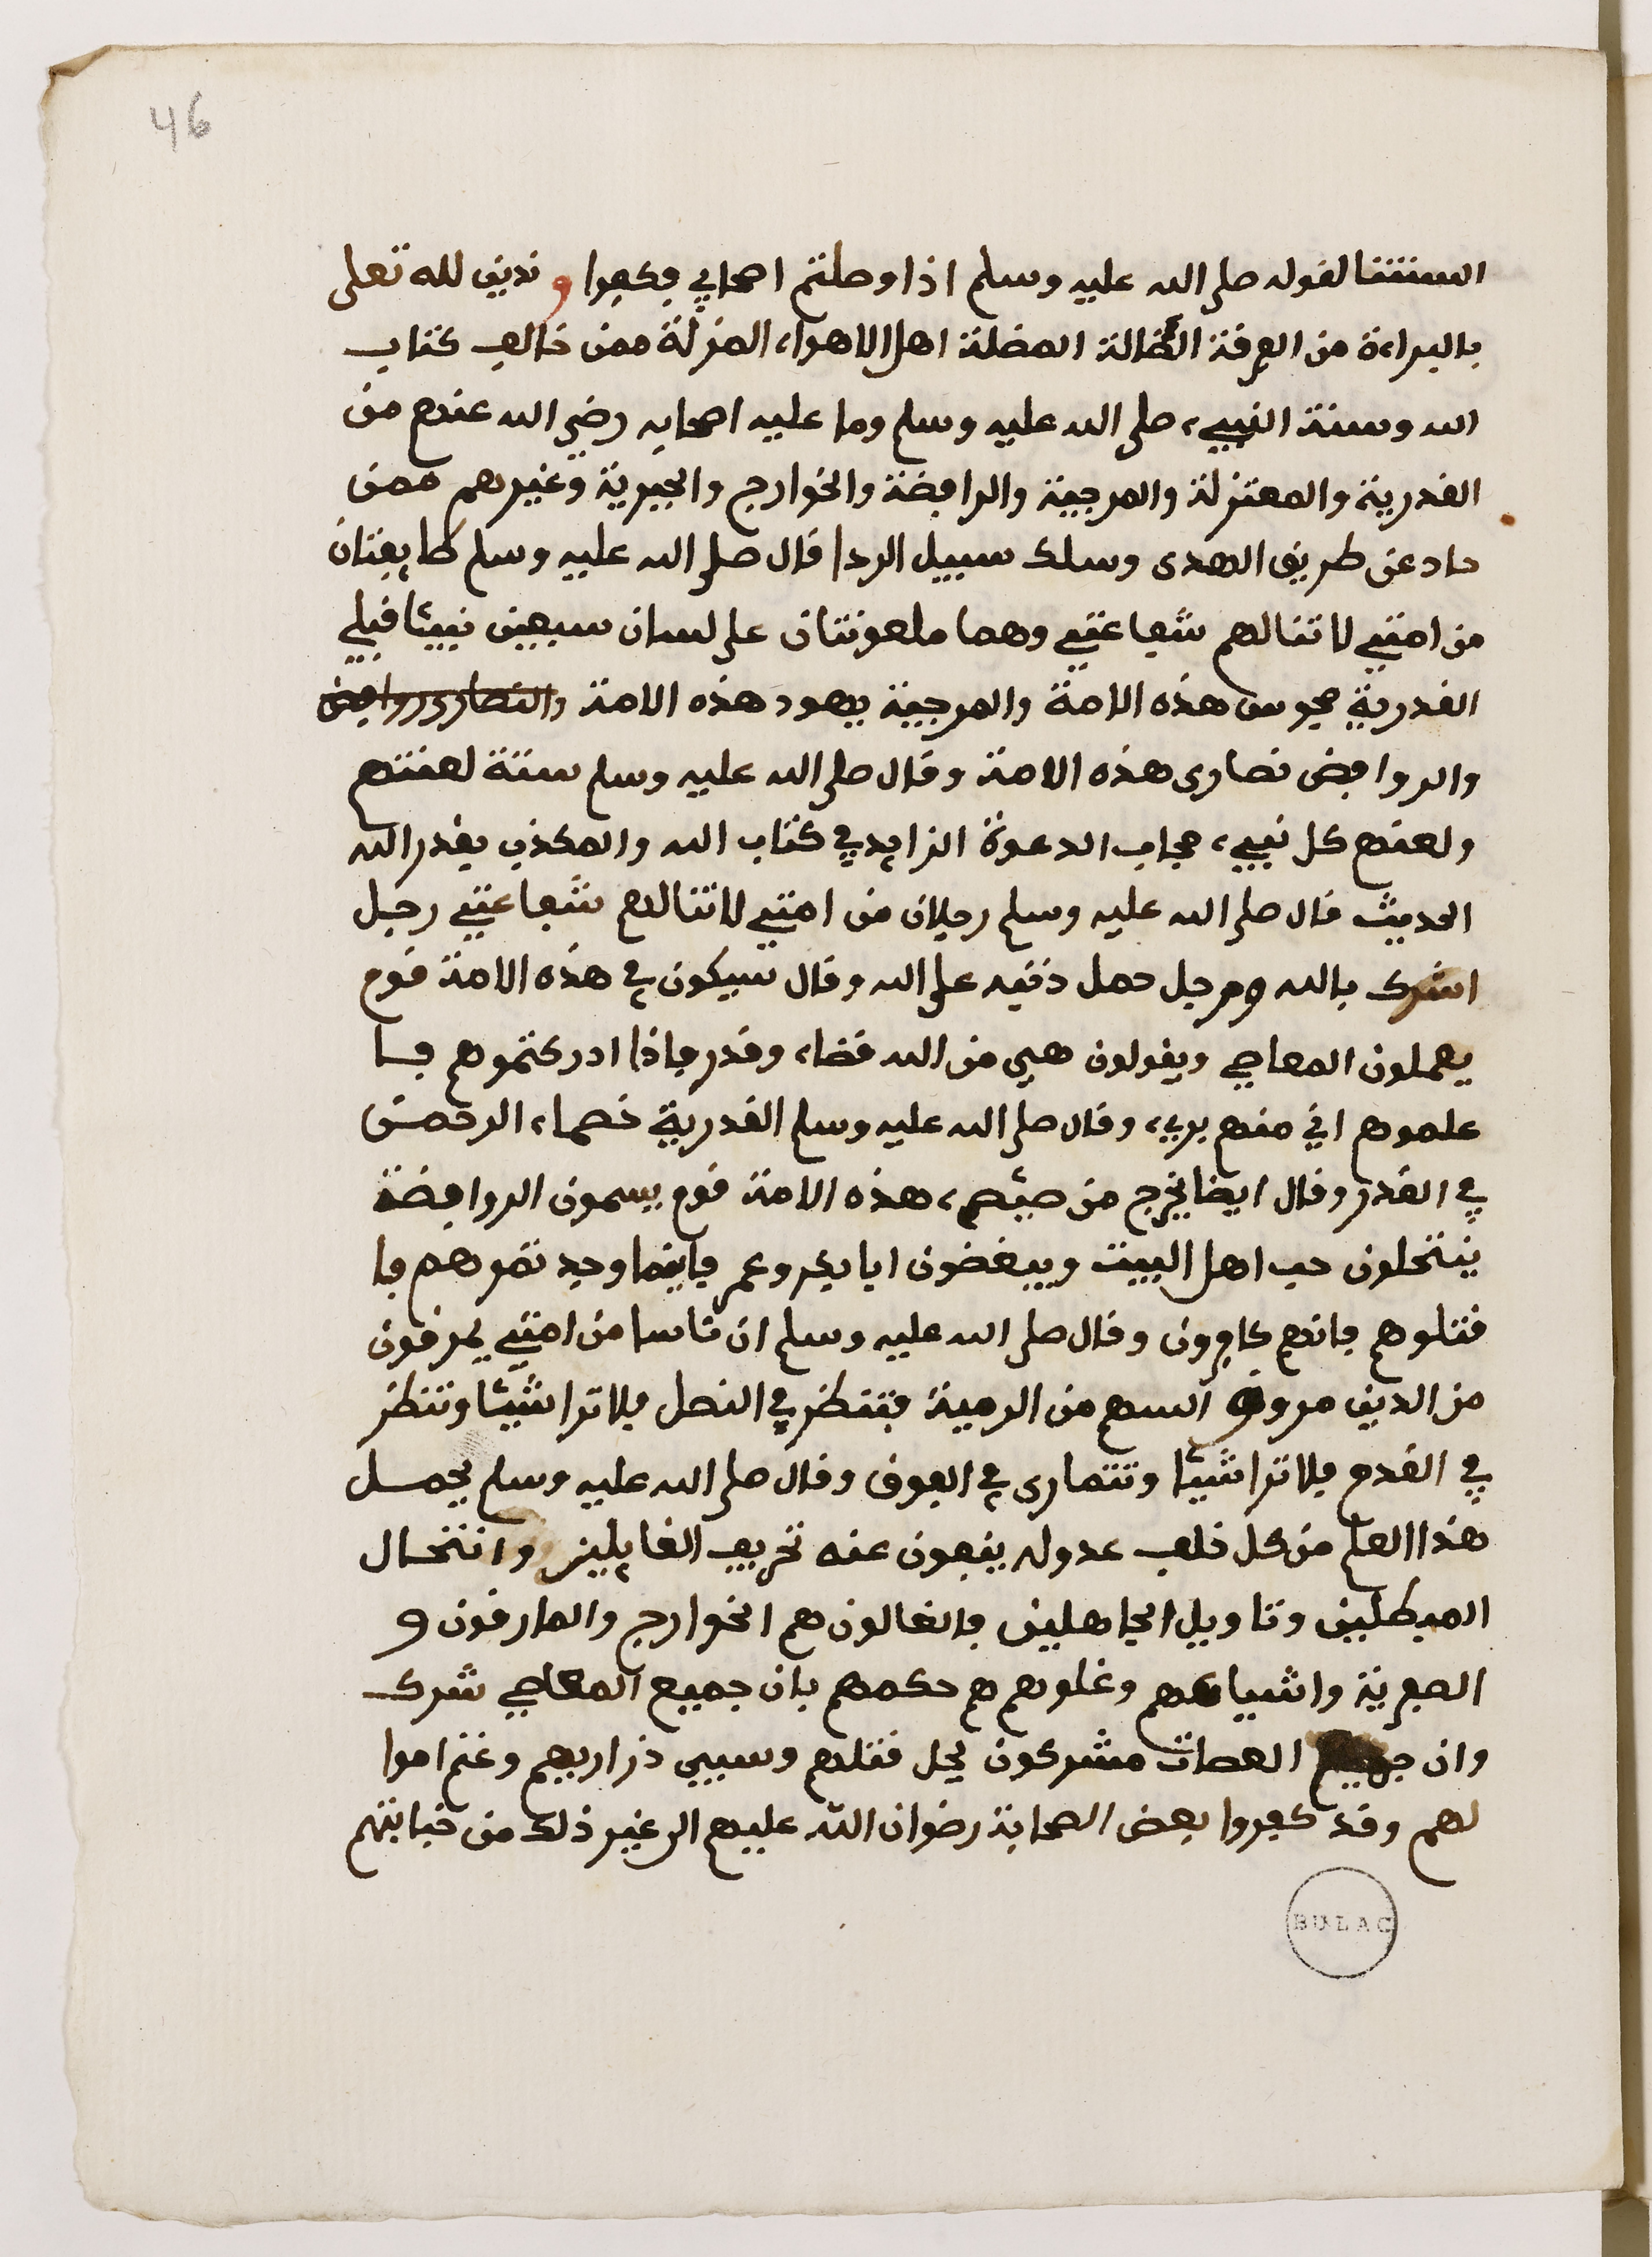 46
السنتنا لقوله صلى الله عليه وسلم اذا وصلتم اصحابي فكفوا وندين لله تعلى
بالبراءة من الفرقة الضالة المضلة اهل الاهواء المزلة ممن خالف كتاب
الله وسنة النبيء صلى الله عليه وسلم وما عليه اصحابه رضي الله عنهم من
القدرية والمعتزلة والمرجية والرافضة والخوارج والجبرية وغيرهم ممن
حاد عن طريق الهدى وسلك سبيل الردا قال صلى الله عليه وسلم طايفتان
من امتي لا تنالهم شفاعتي وهما ملعونتان على لسان سبعين نبيئا قبلي
القدرية مجوس هذه الامة والمرجية يهود هذه الامة والنصارى روافض
والروافض نصارى هذه الامة وقال صلى الله عليه وسلم ستة لعنتهم
ولعنهم كل نبيء مجاب الدعوة الزايد في كتاب الله والمكذب بقدر الله
الحديث قال صلى الله عليه وسلم رجلان من امتي لا تنالهم شفاعتي رجل
اشرك بالله ورجل حمل ذنبه على الله وقال سيكون في هذه الامة قوم
يعملون المعاصي ويقولون هي من الله قضاء وقدر فاذا ادركتموهم فا
علموهم اني منهم بريء وقال صلى الله عليه وسلم القدرية خصماء الرحمن
في القدر وقال ايضا يخرج من هذه الامة قوم يسمون الروافضة
ينتحلون حب اهل البيت ويبغضون ابا بكر وعمر فاينما وجدتموهم فا
قتلوهم فانهم كافرون وقال صلى الله عليه وسلم ان ناسا من امتي يمرقون
من الدين مروق السهم من الرمية فتنظر في النصل فلا ترا شيئا وتنظر
في القدم فلا ترا شيئا وتتمارى في الفوق وقال صلى الله عليه وسلم يحمل
هذا العلم من كل خلف عدوله ينفون عنه تحريف الغايلين وانتحال
المبطلين وتاويل الجاهلين فالغالون هم الخوارج والمارقون و
الصفرية واشياعهم وغلوهم هم حكمهم بان جميع المعاصي شرك
وان جميع العصاة مشركون يحل قتلهم وسبي ذراريهم وغنم اموا
لهم وقد كفروا بعض الصحابة رضوان الله عليهم الى غير ذلك من خبايثهم
BULAC